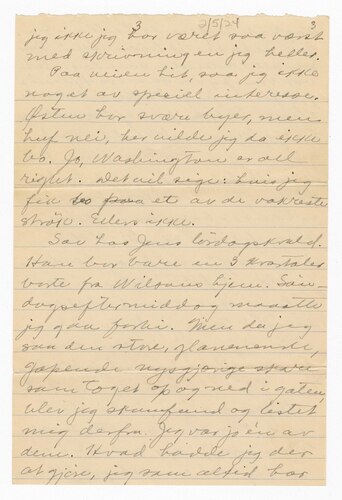 3 2/5/24 3
jeg ikke jeg har været saa værst
med skrivningen jeg heller.
Paa veien hit, saa jeg ikke
noget av speciel interesse.
Østen har svære byer, men
huf nei, her vilde jeg da ikke
bo. Jo, Washington er all
right. Det vil sige: hvis jeg
fik bo et av de vakreste
strøk. Ellers ikke.
Saa hos Jens lördagskvæld.
Han bor bare en 3 kvartaler
borte fra Wilsons hjem. Sön-
dagseftermiddag maatte
jeg gaa forbi. Men da jeg
saa den store, glanende,
gapende nysgjerrige skare
som toget op og ned i gaten,
blev jeg skamfund og listet
mig derfra. Jeg var jo én av
dem. Hvad hadde jeg der
at gjöre, jeg som altid har